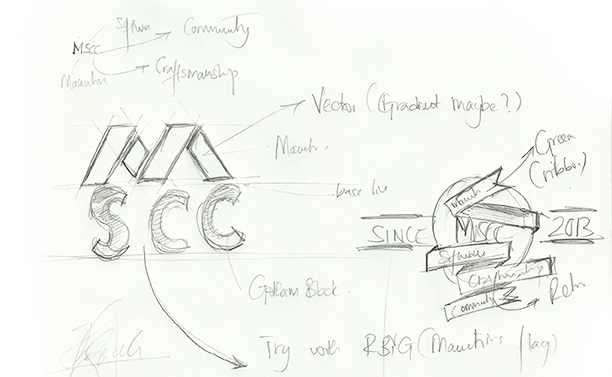 Community
MSCC
Craftsmanship
Vector (Gradient maybe?)
base line
SCC
Gotham Black.
Try with RBYG (Mauritius flag)
Green
(ribbon)
SINCE MSCC 2013
Software
Craftsmanship
Community
Retro